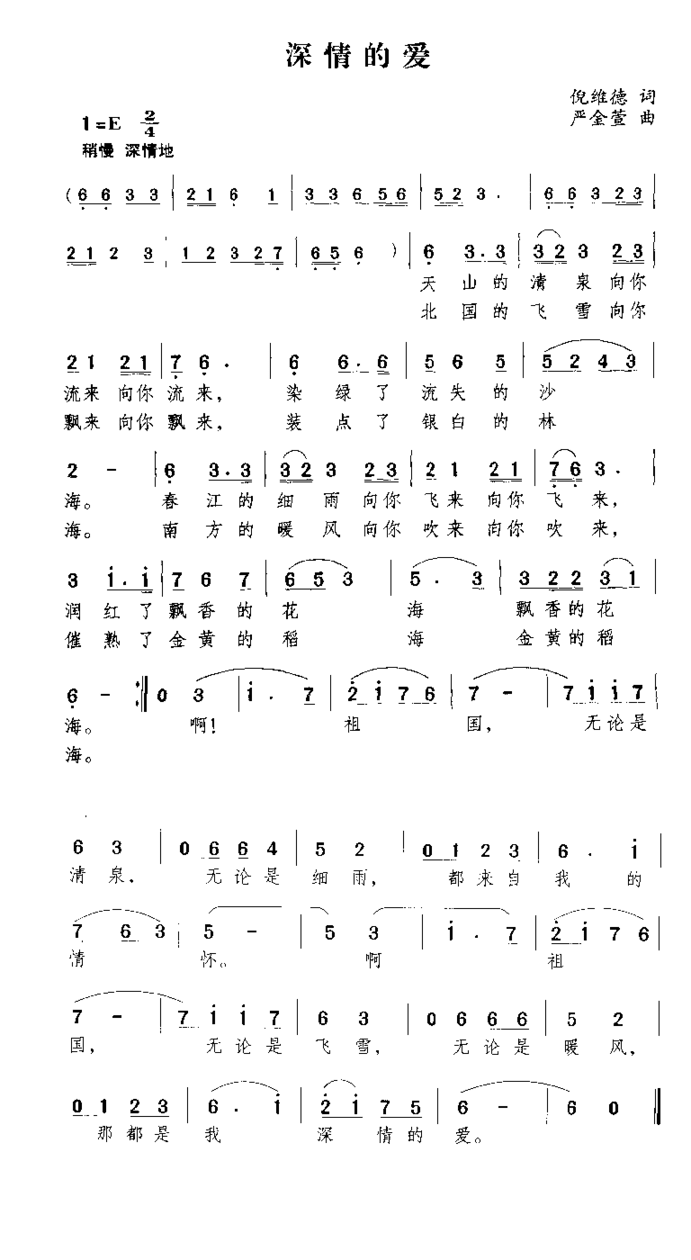 深情的爱
倪维德 词
1=E 2/4
严金萱 曲
稍慢 深情地
( 6 6 3 3 | 2 1 6 1 | 3 3 6 5 6 | 5 2 3 . | 6 6 3 2 3 |
2 1 2 3 | 1 2 3 2 7 | 6 5 6 ) | 6 3 . 3 | 3 2 3 2 3 |
天 山 的 清 泉 向你
北 国 的 飞 雪 向你
2 1 2 1 | 7 6 . | 6 6 . 6 | 5 6 5 | 5 2 4 3 |
流来 向你 流来, 染 绿 了 流 失 的 沙
飘来 向你 飘来, 装 点 了 银 白 的 林
2 - | 6 3 . 3 | 3 2 3 2 3 | 2 1 2 1 | 7 6 3 . |
海。 春 江 的 细 雨 向你 飞来 向你 飞 来,
海。 南 方 的 暖 风 向你 吹来 向你 吹 来,
3 i . i | 7 6 7 | 6 5 3 | 5 . 3 | 3 2 2 3 1 |
润 红 了 飘 香 的 花 海 飘香的花
催 熟 了 金 黄 的 稻 海 金黄的稻
6 - :‖ 0 3 | i . 7 | 2 i 7 6 | 7 - | 7 i i 7 |
海。 啊! 祖 国, 无论是
海。
6 3 | 0 6 6 4 | 5 2 | 0 1 2 3 | 6 . i |
清 泉, 无论是 细 雨, 都来自 我 的
7 6 3 | 5 - | 5 3 | i . 7 | 2 i 7 6 |
情 怀。 啊 祖
7 - | 7 i i 7 | 6 3 | 0 6 6 6 | 5 2 |
国, 无论是 飞 雪, 无论是 暖 风,
0 1 2 3 | 6 . i | 2 i 7 5 | 6 - | 6 0 ‖
那都是 我 深 情 的 爱。